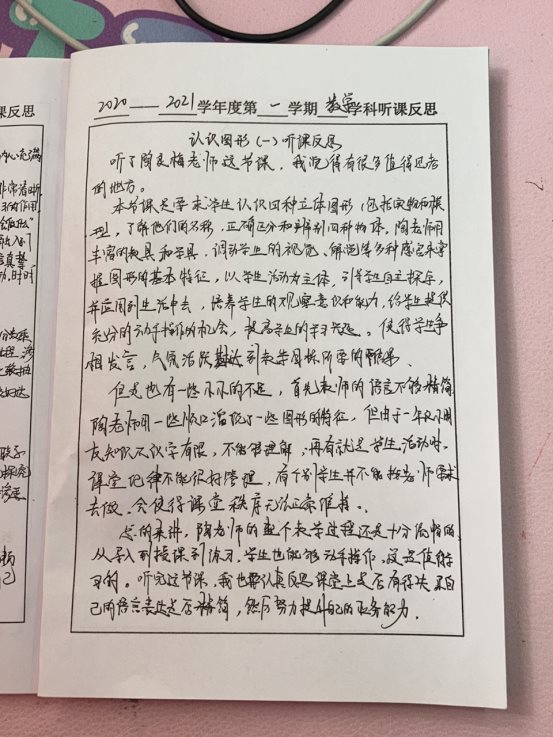 课反思
2020——2021学年度第一学期 数学学科听课反思
认识图形(一)听课反思
听了陶良梅老师这节课,我觉得有很多值得思考
的地方。
本节课是要求学生认识四种立体图形,包括实物和模
型,了解他们的名称,正确区分和辨别四种物体。陶老师用
丰富的教具和学具,调动学生的视觉、触觉等多种感官来掌
握图形的基本特征,以学生活动为主体,引导学生自主探索,
并应用到生活中去,培养学生的观察意识和能力,给学生提供
充分的动手操作的机会,提高学生的学习兴趣。使得学生争
相发言,气氛活跃,达到教学目标所要的效果。
但是也有一些小小的不足,首先老师的语言不够精简,
陶老师用一些顺口溜说了一些图形的特征,但由于一年级小朋
友知识及识字有限,不能够理解,再有就是学生活动时,
课堂纪律不能很好管理,有个别学生并不能按老师要求
去做,会使得课堂秩序无法正常维持。
总的来讲,陶老师的整个教学过程还是十分流畅的,
从导入到授课到练习,学生也能够动手操作,这是值得学
习的。听完这节课,我也要认真反思课堂上是否有得失,自
己的语言表达是否精简,然后努力提升自己的业务能力。